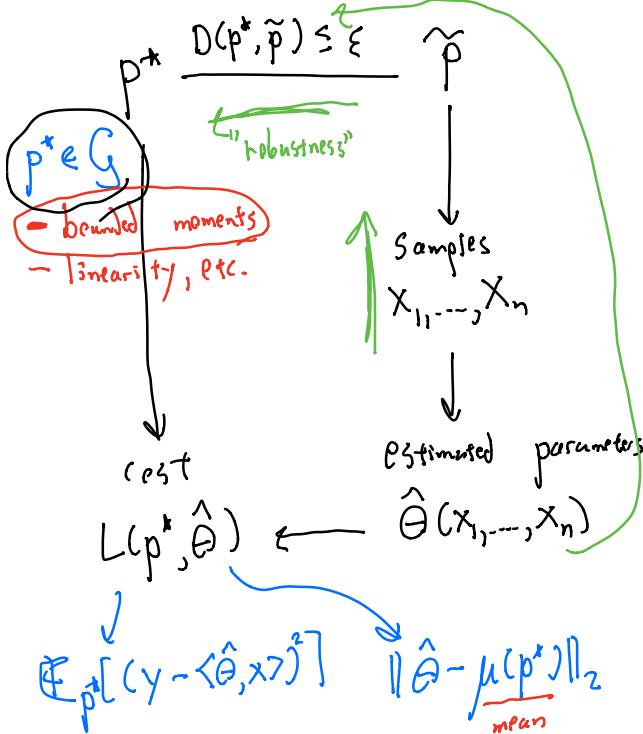 p* D(p*, p̃) ≤ ε p̃
"robustness"
p* ∈ G
- bounded moments
- linearity, etc.
Samples
X₁, ..., Xₙ
estimated parameters
cost
L(p*, θ̂) θ̂(X₁, ..., Xₙ)
𝔼_p*[(y - <θ̂, x>)²] ||θ̂ - μ(p*)||₂
mean